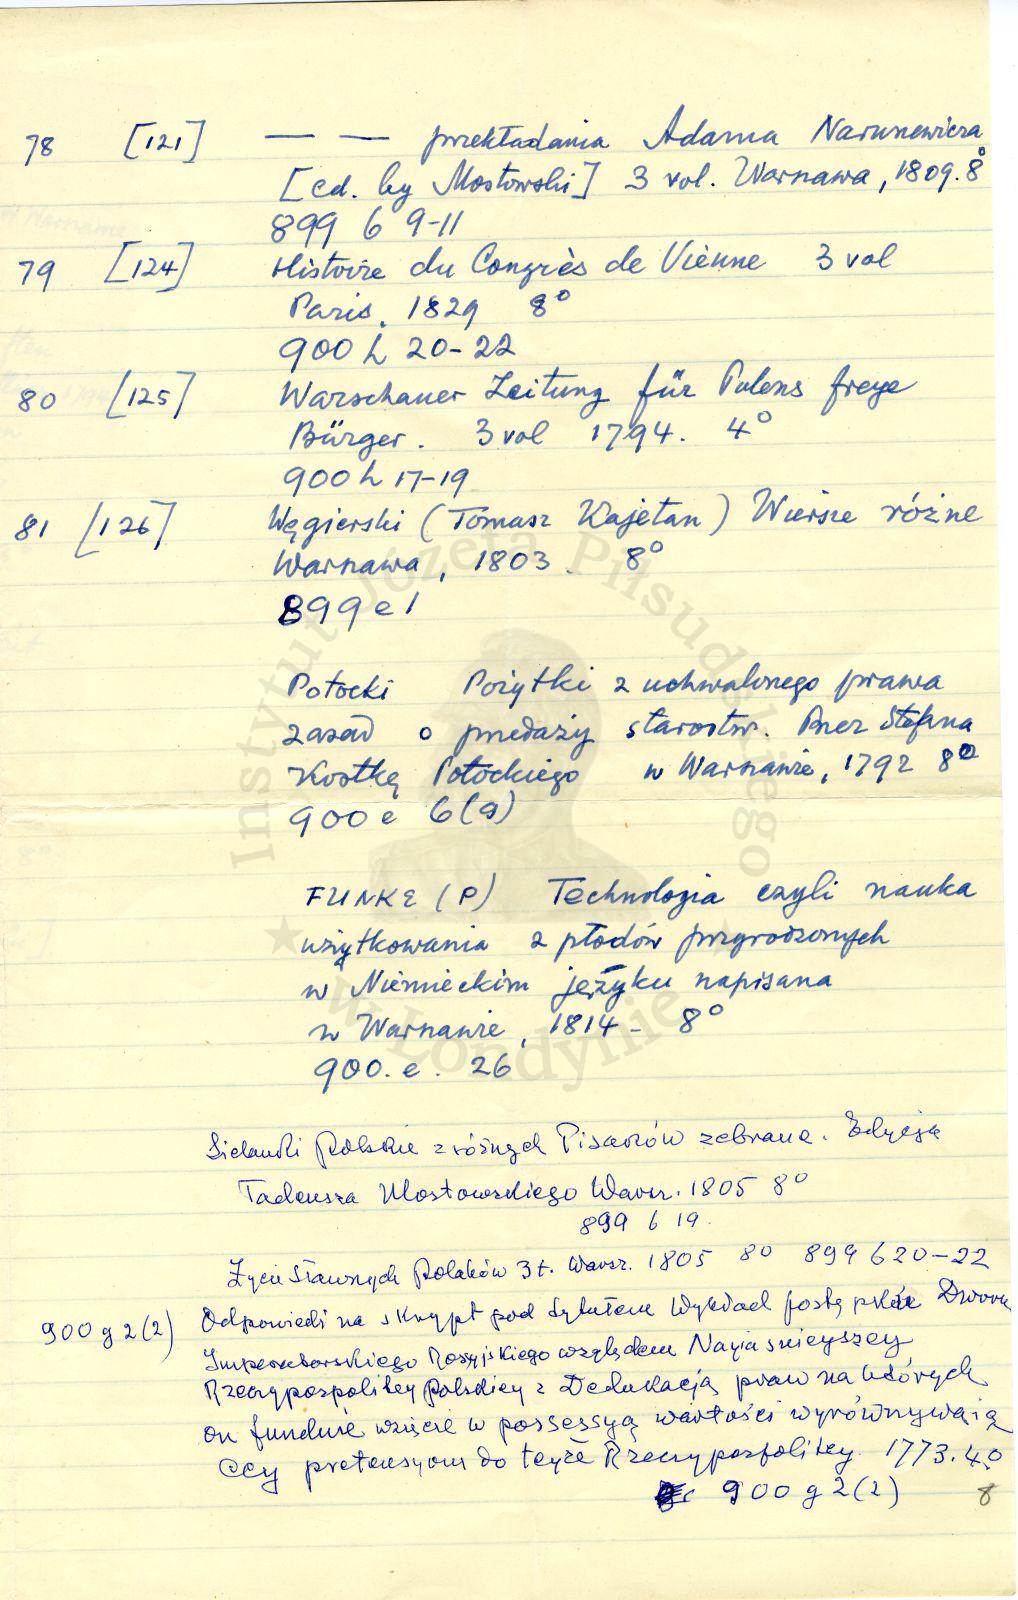 78 [121] — — przekładania Adama Naruszewicza
[ed. by Mostowski] 3 vol. Warszawa, 1809. 8°
899 b 9-11
79 [124] Histoire du Congrès de Vienne 3 vol
Paris, 1829 8°
900 h 20-22
80 [125] Warschauer Zeitung für Polens freye
Bürger. 3 vol 1794. 4°
900 h 17-19
81 [126] Węgierski (Tomasz Kajetan) Wiersze różne
Warszawa, 1803. 8°
899 e 1
Potocki Pożytki z uchwalonego prawa
zasad o przedaży starostw. Przez Stefana
Kostkę Potockiego w Warszawie, 1792 8°
900 e 6(9)
FUNKE (P) Technologia czyli nauka
użytkowania z płodów przyrodzonych
w Niemieckim języku napisana
w Warszawie, 1814 - 8°
900. e. 26
Sielanki Polskie z różnych Pisarzów zebrane. Edycja
Tadeusza Mostowskiego Warsz. 1805 8°
899 b 19.
Życie Sławnych Polaków 3 t. Warsz. 1805 8° 899 b 20-22
900 g 2(2) Odpowiedi na skrypt pod tytułem Wykład Dworu
Imperatorskiego Rosyjskiego względem Nayiasnieyszey
Rzeczypospolitey Polskiey z Dedukacją praw na których
on funduie wzięcie w possessyą wartości wyrównywaią
cey pretensyom do teyże Rzeczypospolitey. 1773. 4°
900 g 2(2)
8
Instytut Józefa Piłsudskiego
w Londynie